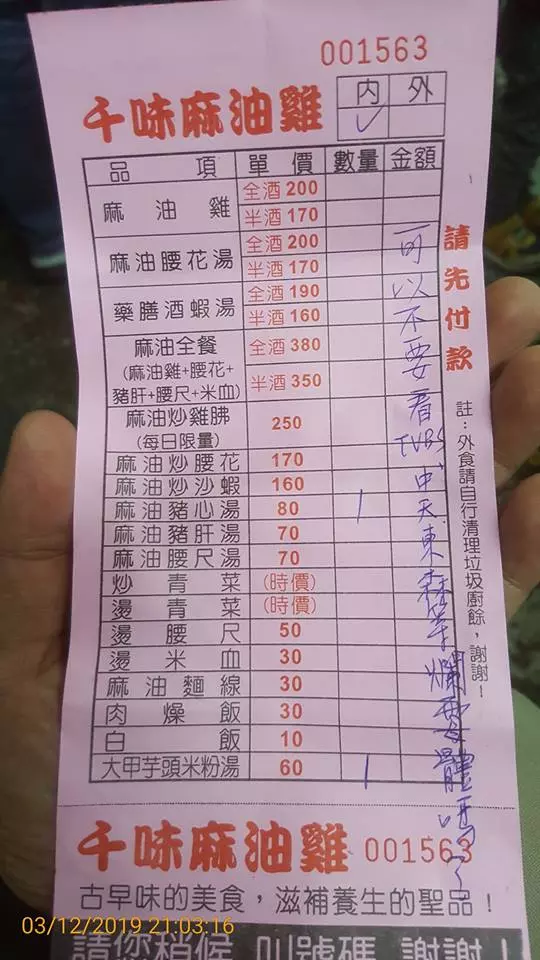 001563
千味麻油雞 內 外
✓
品項 單價 數量 金額
麻油雞 全酒 200
半酒 170
麻油腰花湯 全酒 200
半酒 170
藥膳酒蝦湯 全酒 190
半酒 160
麻油全餐 全酒 380
(麻油雞+腰花+
豬肝+腰尺+米血) 半酒 350
麻油炒雞胇 250
(每日限量)
麻油炒腰花 170
麻油炒沙蝦 160
麻油豬心湯 80 1
麻油豬肝湯 70
麻油腰尺湯 70
炒青菜 (時價)
燙青菜 (時價)
燙腰尺 50
燙米血 30
麻油麵線 30
肉燥飯 30
白飯 10
大甲芋頭米粉湯 60 1
可以不要看TVBS中天東森等爛媒體嗎
請先付款
註：外食請自行清理垃圾廚餘，謝謝！
千味麻油雞 001563
古早味的美食，滋補養生的聖品！
03/12/2019 21:03:16
請您稍候 叫號碼 謝謝！